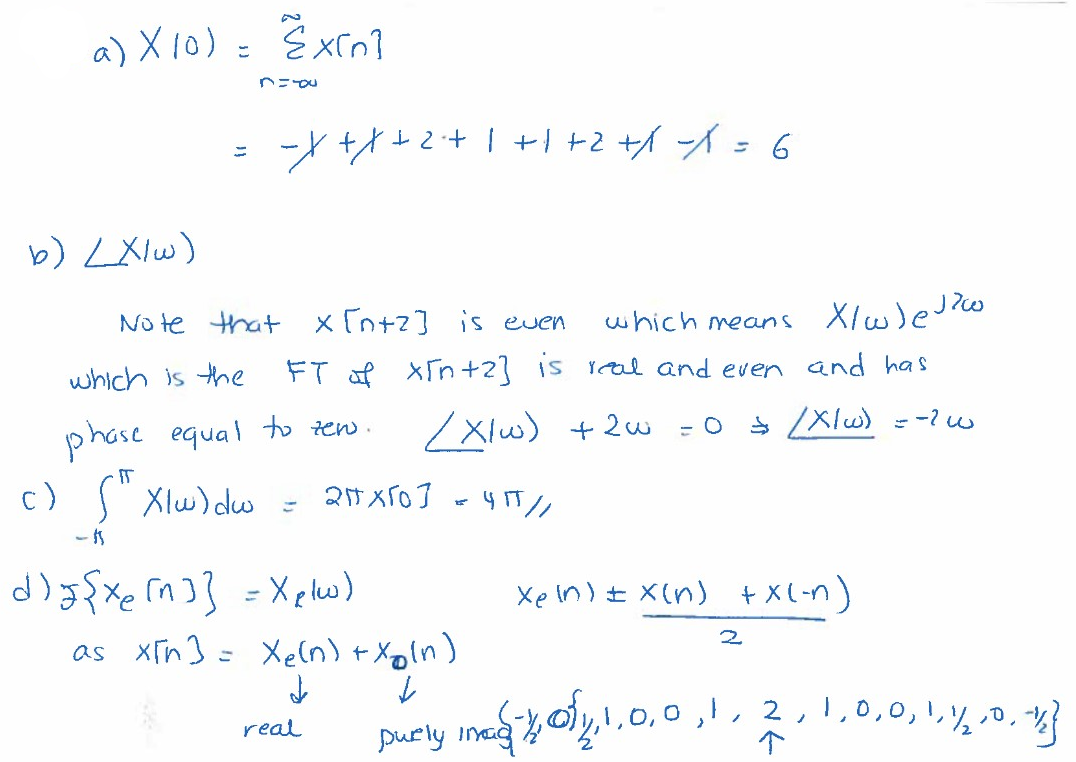 a) X(0) = Σ x[n]
∞
n=-∞
= -1 + 1 + 2 + 1 + 1 + 2 + 1 - 1 = 6
b) ∠X(ω)
Note that x[n+2] is even which means X(ω)e^{j2ω}
which is the FT of x[n+2] is real and even and has
phase equal to zero. ∠X(ω) + 2ω = 0 ⇒ ∠X(ω) = -2ω
c) ∫_{-π}^{π} X(ω)dω = 2π x[0] = 4π //
d) F{x_e[n]} = X_R(ω) x_e(n) = (x(n) + x(-n))/2
as x[n] = x_e(n) + x_o(n)
↓ ↓
real purely imag {-1/2, 0, 1/2, 1, 0, 0, 1, 2, 1, 0, 0, 1, 1/2, 0, -1/2}
↑